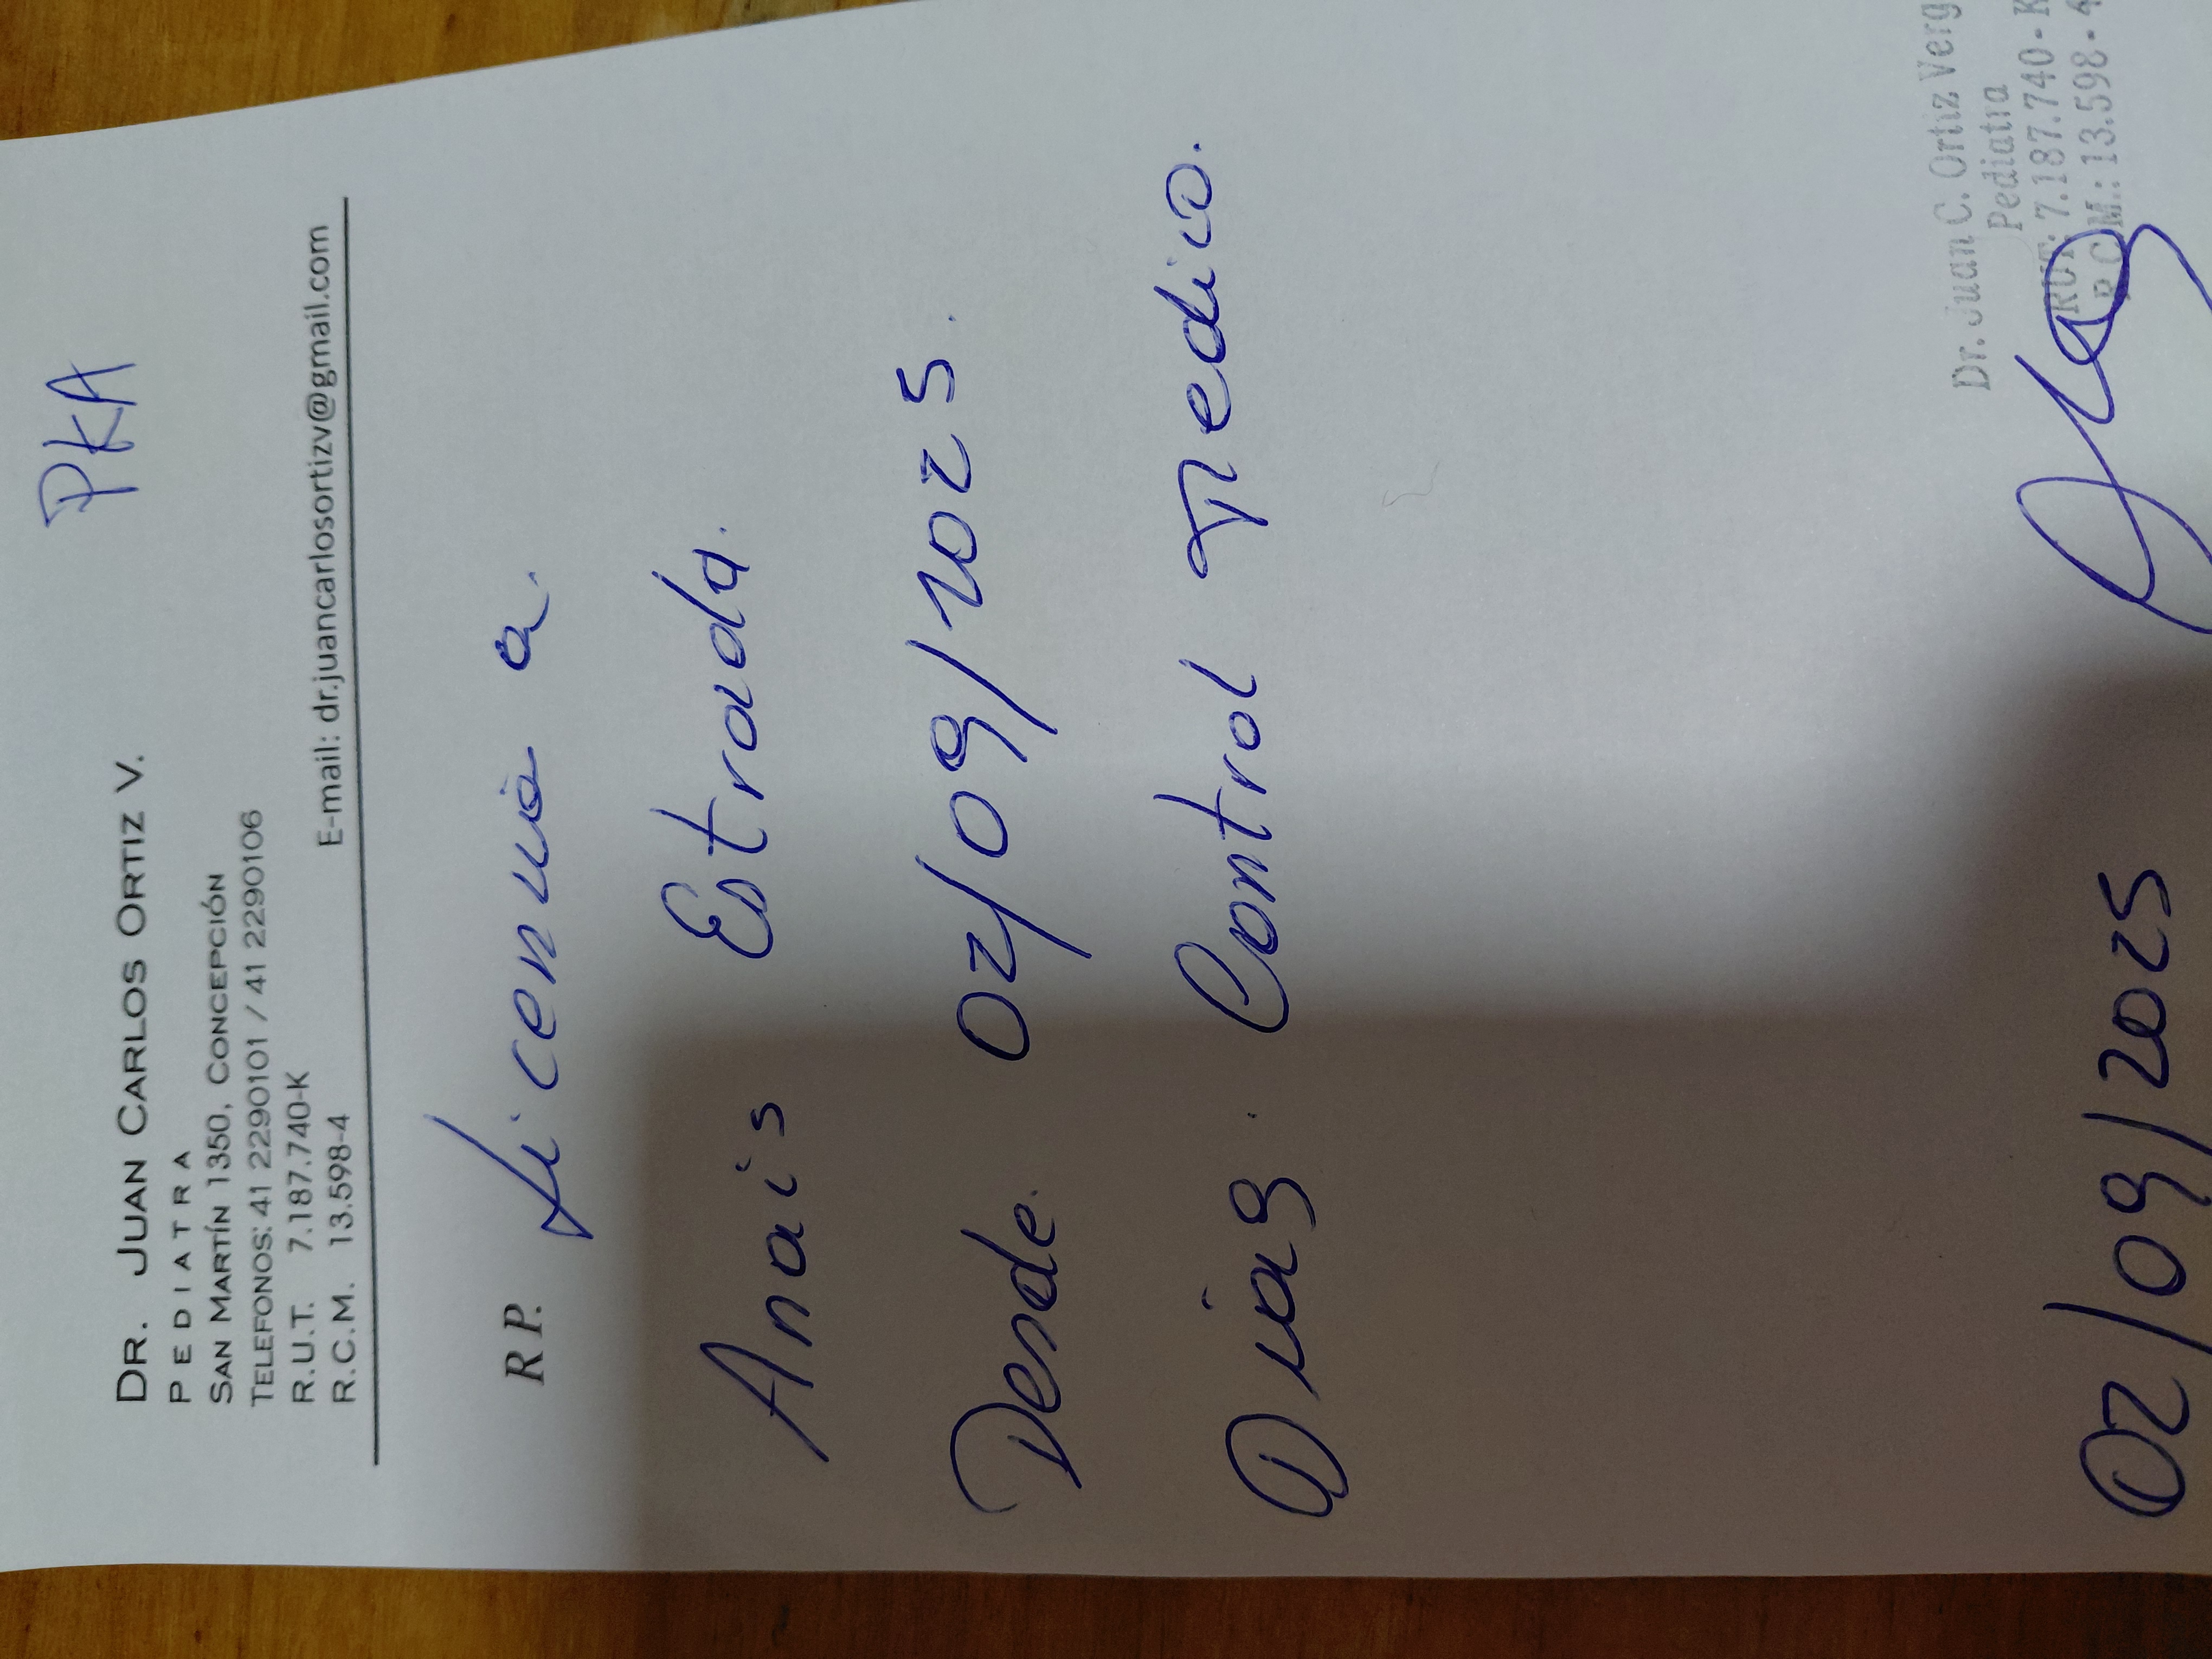 PKA
DR. JUAN CARLOS ORTIZ V.
PEDIATRA
SAN MARTÍN 1350, CONCEPCIÓN
TELEFONOS: 41 2290101 / 41 2290106
R.U.T. 7.187.740-K
R.C.M. 13.598-4 E-mail: dr.juancarlosortizv@gmail.com
RP. Licencia a.
Anais Estrada.
Desde. 02/09/2025.
Diag. Control Medico.
Dr. Juan C. Ortiz Verg
Pediatra
RUT: 7.187.740-K
R.C.M.: 13.598-4
02/09/2025